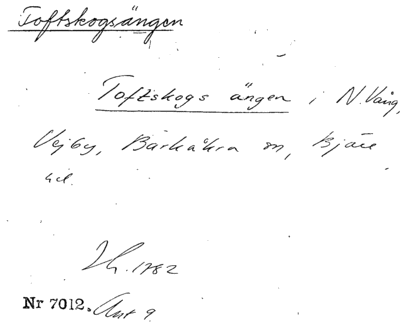 Toftskogsängen
Toftskogs ängen i N. Vång,
Vejby, Barkåkra sn, Bjäre
hd.
1782
Nr 7012. Akt 9